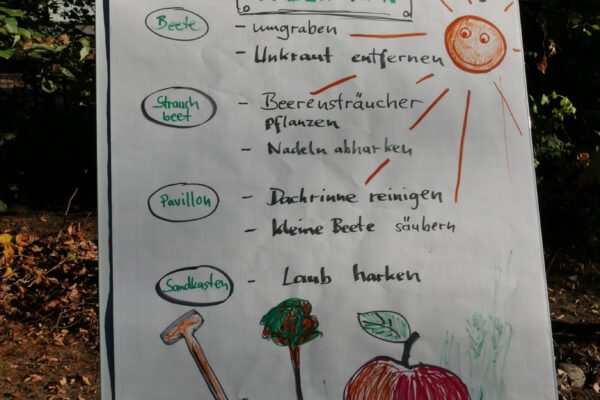 Beete
- umgraben
- Unkraut entfernen
Strauch
beet
- Beerensträucher
pflanzen
- Nadeln abharken
Pavillon
- Dachrinne reinigen
- kleine Beete säubern
Sandkasten
- Laub harken